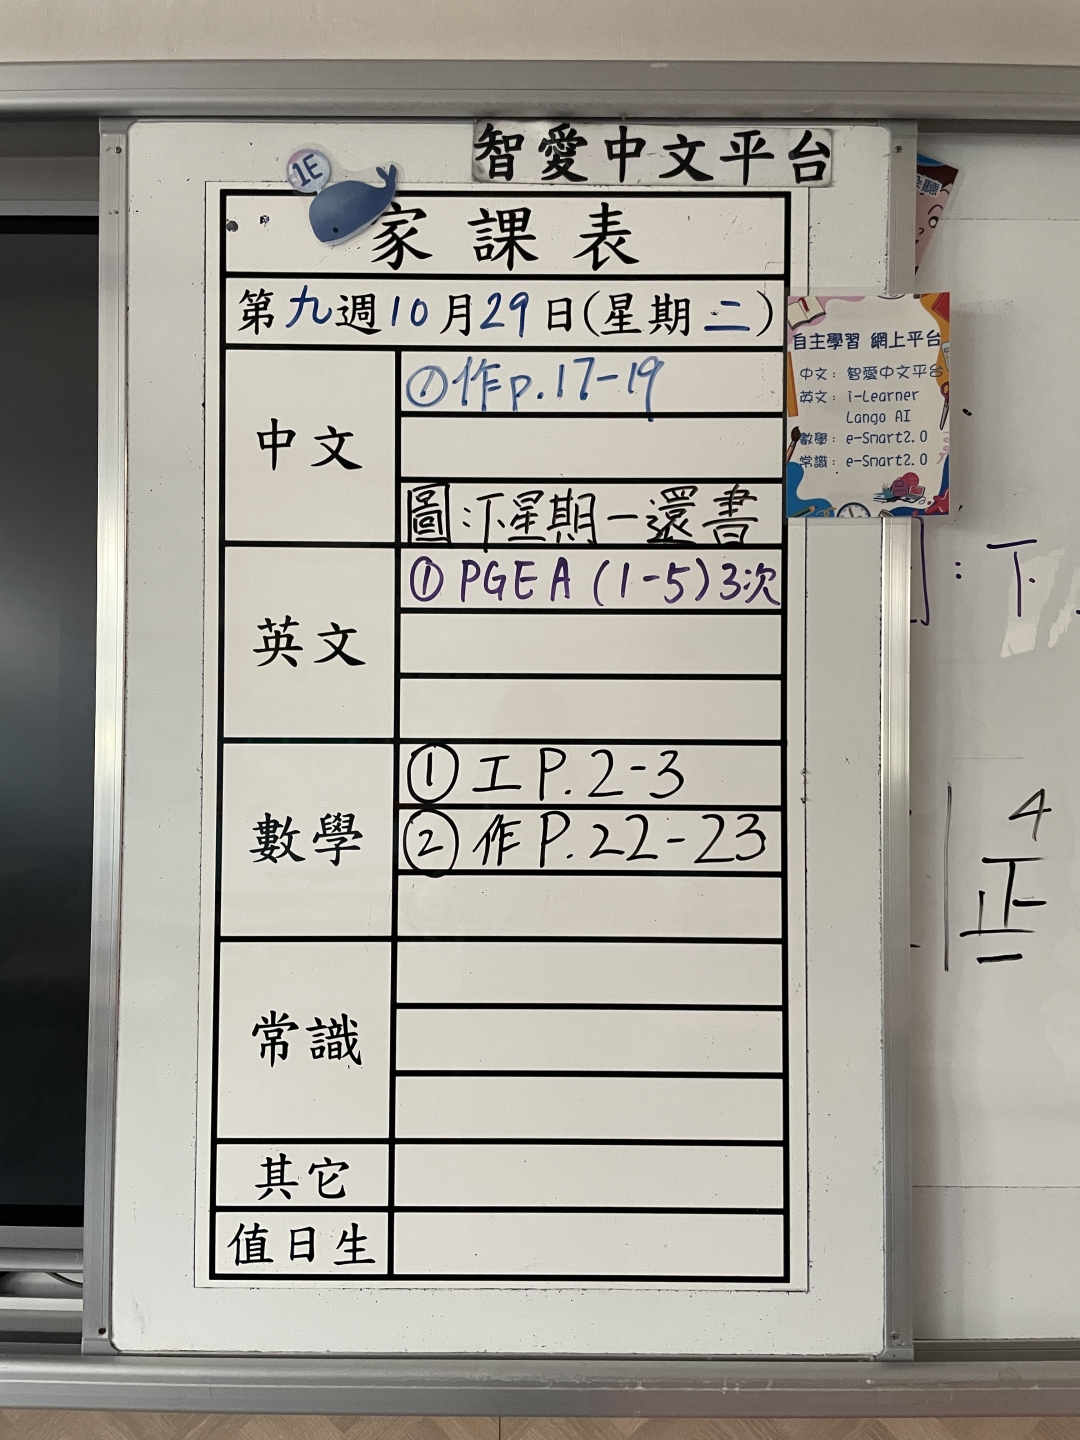 智愛中文平台
1E
家課表
第九週10月29日(星期二)
中文
①作p.17-19
圖:下星期一還書
英文
①PGEA(1-5)3次
數學
①工P.2-3
②作P.22-23
常識
其它
值日生
自主學習 網上平台
中文: 智愛中文平台
英文: i-Learner
Lango AI
數學: e-Smart2.0
常識: e-Smart2.0
: 下
4
正